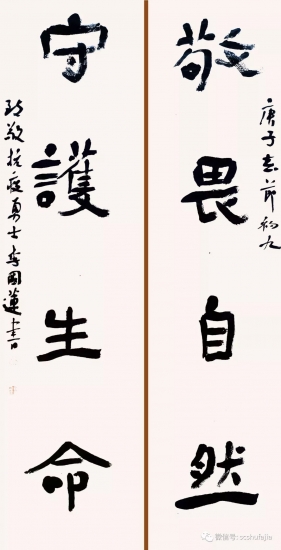 庚子春節初九
敬畏自然
守護生命
致敬抗疫勇士李國蓮書
微信号: scshufajia